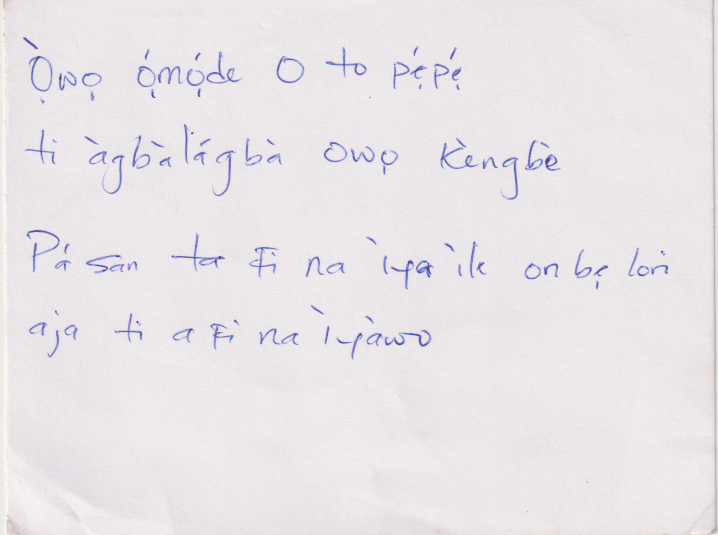 Ọ̀wọ ọ́mọ́de O to pẹ́pẹ́
ti àgbàlágbà owọ kèngbè
Pá san ta Fi na ìya ìle on bẹ lori
aja ti a Fi na Ìyàwo